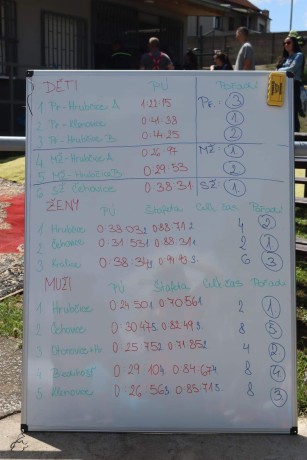 DĚTI PÚ Pořadí
1 Př - Hrubčice A 1:22:15 Př.: 3
2 Př - Klenovice 0:41:38 1
3 Př - Hrubčice B 0:44:25 2
4 Mž - Hrubčice A 0:26:97 Mž: 1
5 Mž - Hrubčice B 0:29:53 2
6 SŽ Čehovice 0 38 31 SŽ: 1
ŽENY PÚ Štafeta Celk. čas Pořadí
1 Hrubčice 0 38 03 4 2
2 Čehovice 0:31 53 2 1
3 Kralice 0:38:34 6 3
MUŽI PÚ Štafeta Celk. čas Pořadí
1 Hrubčice 0 24 50 0 70 56 2 1
2 Čehovice 0:30 47 0:82 49 8 5
3 0:25 75 0:71 85 4 2
4 Biskupice 0:29 10 0:84 67 8 4
5 Klenovice 0:26 56 0:85 71 8 3